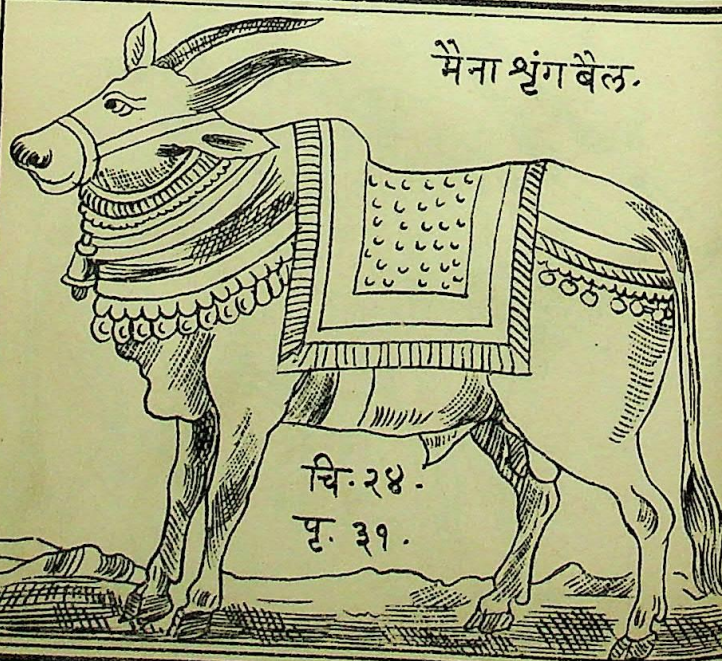 मैना शृंग बैल.
चि. २४.
पृ. ३१.